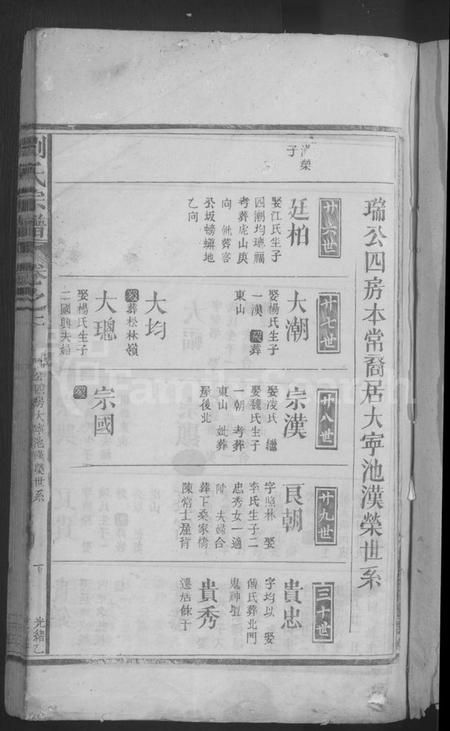 瑞公四房本常裔居大寧池漢榮世系
漢榮
子
廿六世
廷柏
娶江氏生子
四潮均璁福
考葬虎山庚
向 妣葬客
公坂螃蠏地
乙向
廿七世
大潮
娶楊氏生子
一漢 歿葬
東山
大均
歿葬松林嶺
大璁
娶楊氏生子
二國興夫婦
廿八世
宗漢
娶凌氏 繼
娶魏氏生子
一朝 考葬
東山 妣葬
屋後北
宗國
歿
廿九世
良朝
字照林 娶
李氏生子二
忠秀女一適
陳 夫婦合
葬下桑家衕
陳常士屋背
三十世
貴忠
字均以 娶
葬北門
鬼神壇
貴秀
遷居休干
劉氏宗譜
卷之十
公四房大寧池漢榮世系
下
光緒乙